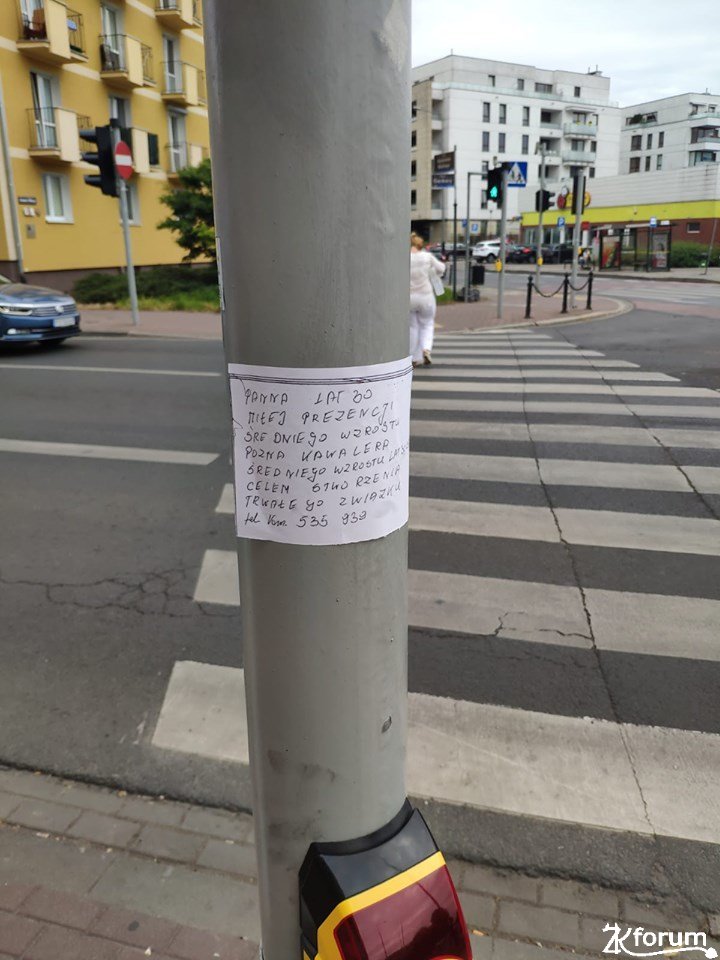 PANNA LAT 30
MIŁEJ PREZENCJI
ŚREDNIEGO WZROSTU
POZNA KAWALERA
ŚREDNIEGO WZROSTU
CELEM STWORZENIA
TRWAŁEGO ZWIĄZKU
tel kom. 535 939
2Kforum